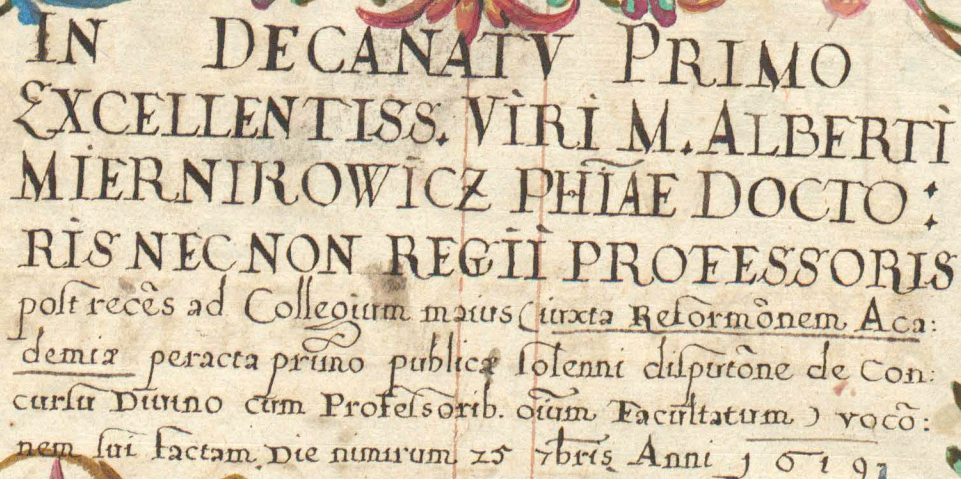 IN DECANATV PRIMO
EXCELLENTISS. VIRI M. ALBERTI
MIERNIKOWICZ PHĨAE DOCTO:
RIS NEC NON REGII PROFESSORIS
post recẽs ad Collegium maius (iuxta Reformõnem Aca:
demiæ peracta primo publicæ solenni disputõne de Con:
cursu Diuino cum Professorib. oĩum Facultatum) vocõ:
nem sui factam Die nimirum 25 7bris Anni 1619,